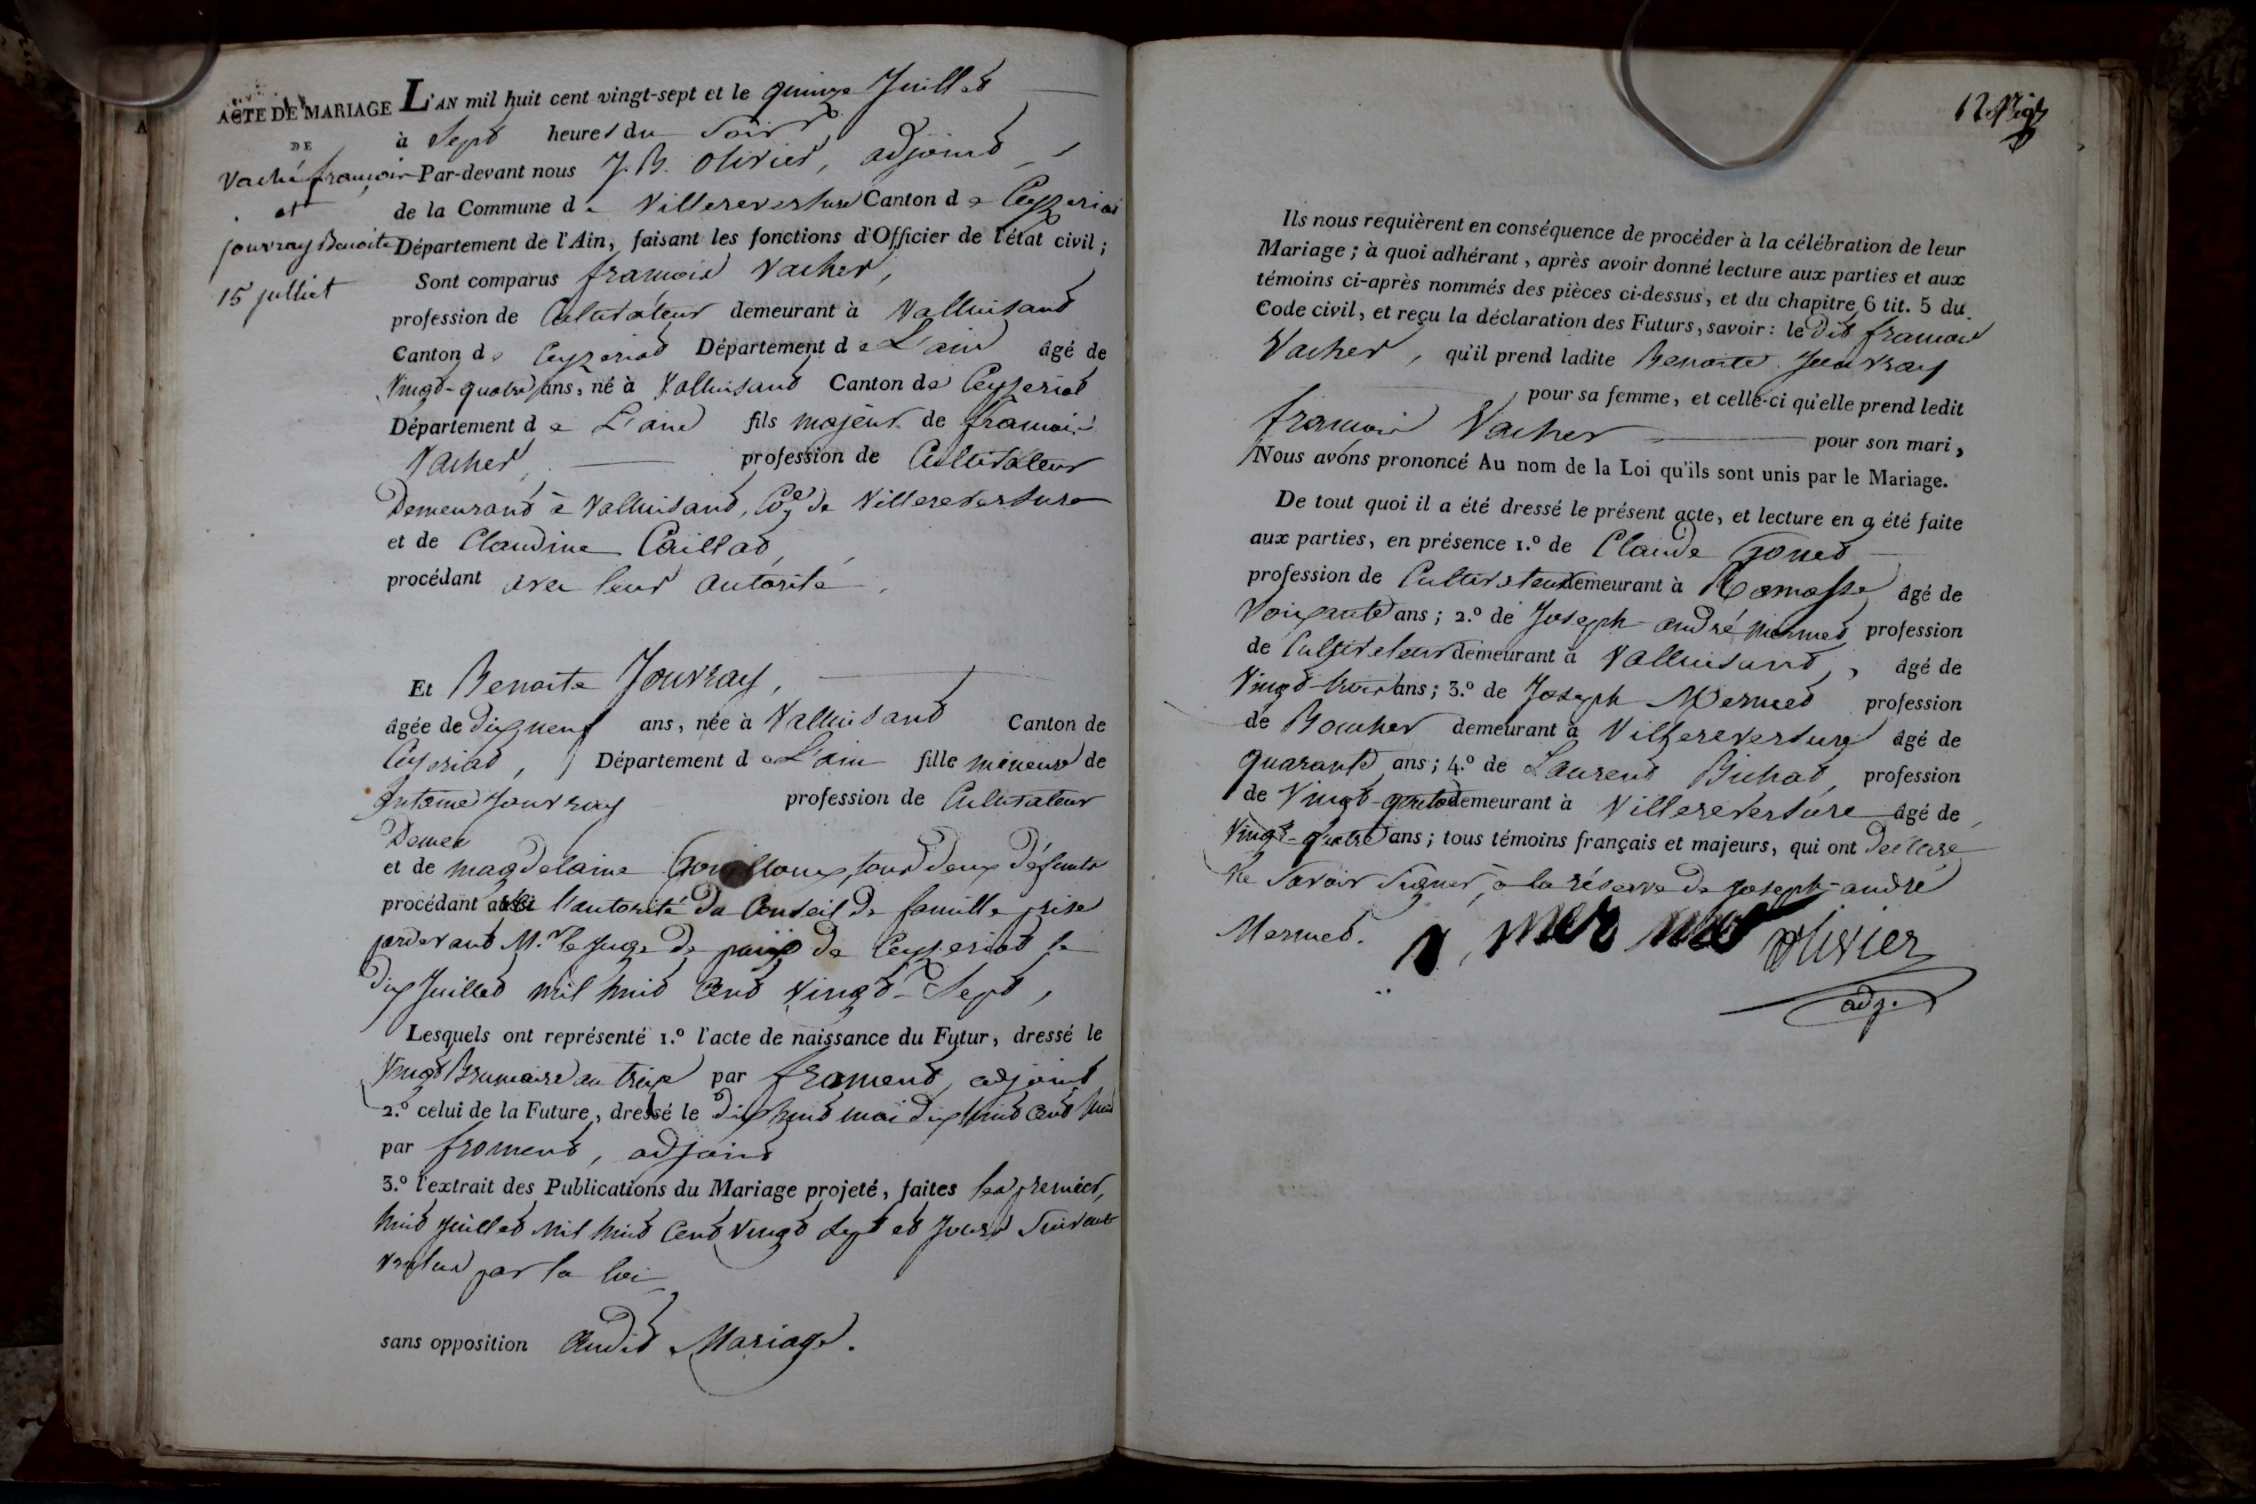 ACTE DE MARIAGE
DE
Vaché françois
et
jouvray Benoite
15 julliet
L'AN mil huit cent vingt-sept et le quinze Juillet
à Sept heures du Soir
Par-devant nous J. B. Olivier, adjoint
de la Commune de Villereversure Canton de Ceyzeriat
Département de l'Ain, faisant les fonctions d'Officier de l'état civil;
Sont comparus françois Vacher,
profession de Cultivateur demeurant à Valluisant
Canton de Ceyzeriat Département de L'ain âgé de
Vingt-quatre ans, né à Valluisant Canton de Ceyzeriat
Département de L'ain fils majeur de françois
Vacher, profession de Cultivateur
Demeurant à Valluisant, Cne de Villereversure
et de Claudine Caillat,
procédant avec leur autorité.
Et Benoite Jouvray,
âgée de dixneuf ans, née à Valluisant Canton de
Ceyzeriat, Département de L'ain fille mineure de
Antoine Jouvray profession de Cultivateur
Demeu
et de magdelaine tous deux défunts
procédant avec l'autorité du Conseil de famille prise
pardevant M.r le Juge de paix de Ceyzeriat le
dix Juillet mil huit Cent vingt-Sept,
Lesquels ont représenté 1.º l'acte de naissance du Futur, dressé le
Vingt Brumaire an treize par froment, adjoint
2.º celui de la Future, dressé le dix huit mai dix huit Cent huit
par froment, adjoint
3.º l'extrait des Publications du Mariage projeté, faites les premier,
huit Juillet mil huit Cent Vingt Sept et Jours Suivant
voulus par la loi
sans opposition audit Mariage.
Ils nous requièrent en conséquence de procéder à la célébration de leur
Mariage; à quoi adhérant, après avoir donné lecture aux parties et aux
témoins ci-après nommés des pièces ci-dessus, et du chapitre 6 tit. 5 du
Code civil, et reçu la déclaration des Futurs, savoir: le dit françois
Vacher, qu'il prend ladite Benoite Jouvray
pour sa femme, et celle-ci qu'elle prend ledit
françois Vacher pour son mari,
Nous avons prononcé Au nom de la Loi qu'ils sont unis par le Mariage.
De tout quoi il a été dressé le présent acte, et lecture en a été faite
aux parties, en présence 1.º de Claude Gonet
profession de Cultivateur demeurant à Romasse âgé de
Soixante ans; 2.º de Joseph-andré mermet profession
de Cultivateur demeurant à Valluisant, âgé de
Vingt-trois ans; 3.º de Joseph Mermet profession
de Boucher demeurant à Villereversure âgé de
quarante ans; 4.º de Laurent Bichat, profession
de Vingt-quatre demeurant à Villereversure âgé de
Vingt-quatre ans; tous témoins français et majeurs, qui ont déclaré
Ne Savoir Signer, à la réserve de Joseph-andré
Mermet.
mer met Olivier
adj.